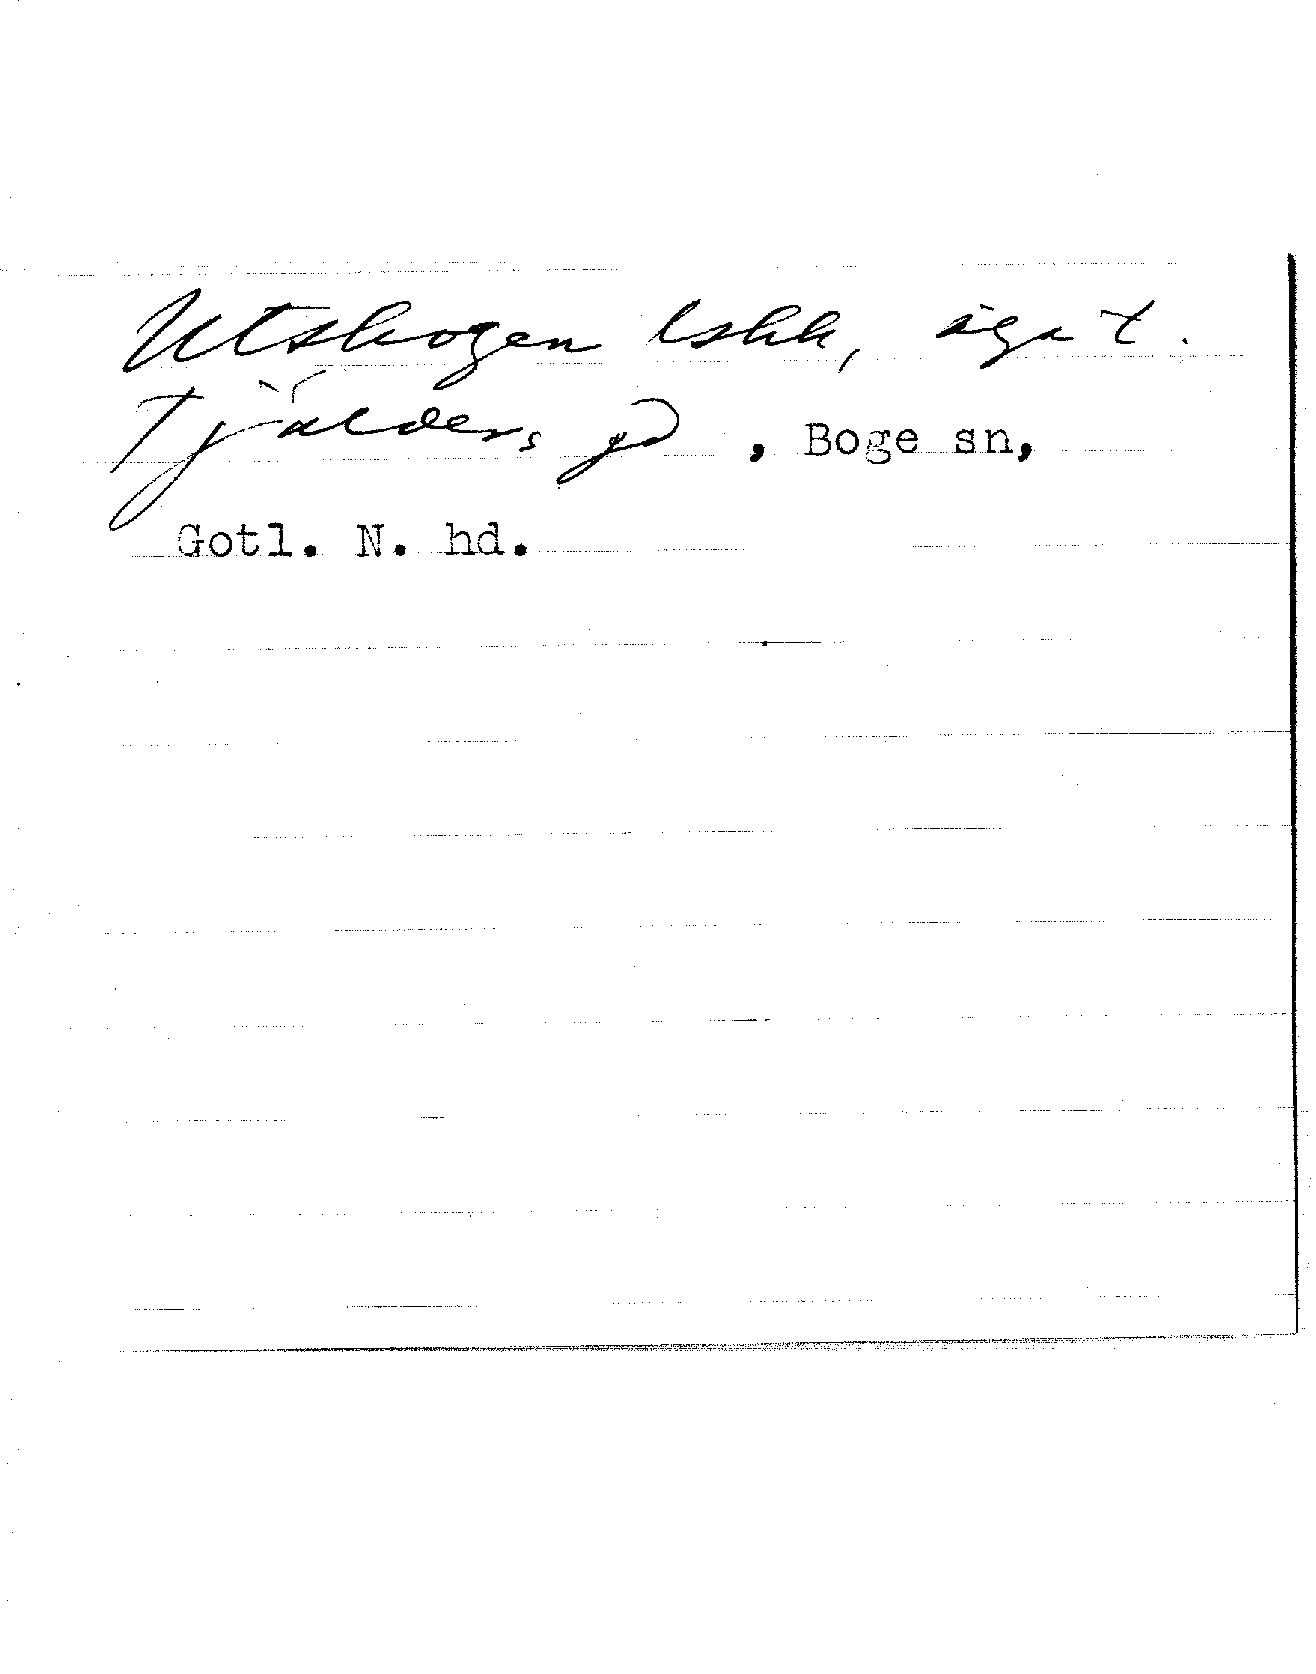 Utskogen lskk, äga t.
Tjälders gd, Boge sn,
Gotl. N. hd.